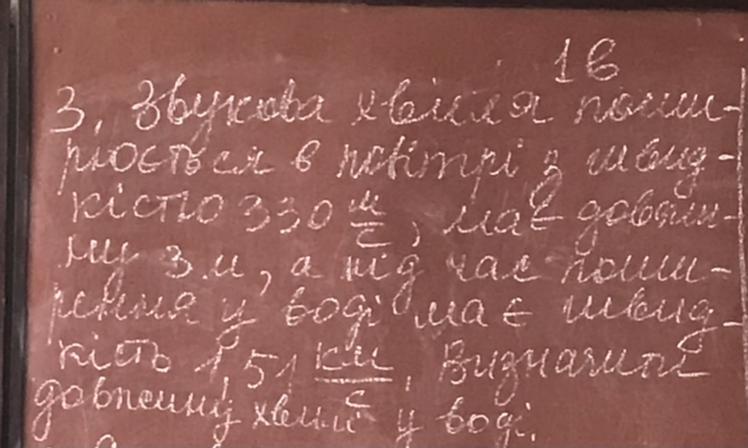 1в
3. Звукова хвиля поши-
рюється в повітрі з швид-
кістю 330 м/с, має довжи-
ну 3 м, а під час поши-
рення у воді має швид-
кість 1,51 км/с. Визначити
довжину хвилі у воді.